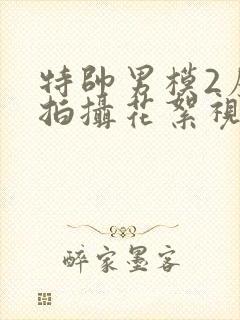 特帥男模2
拍攝花絮視
醉家墨客